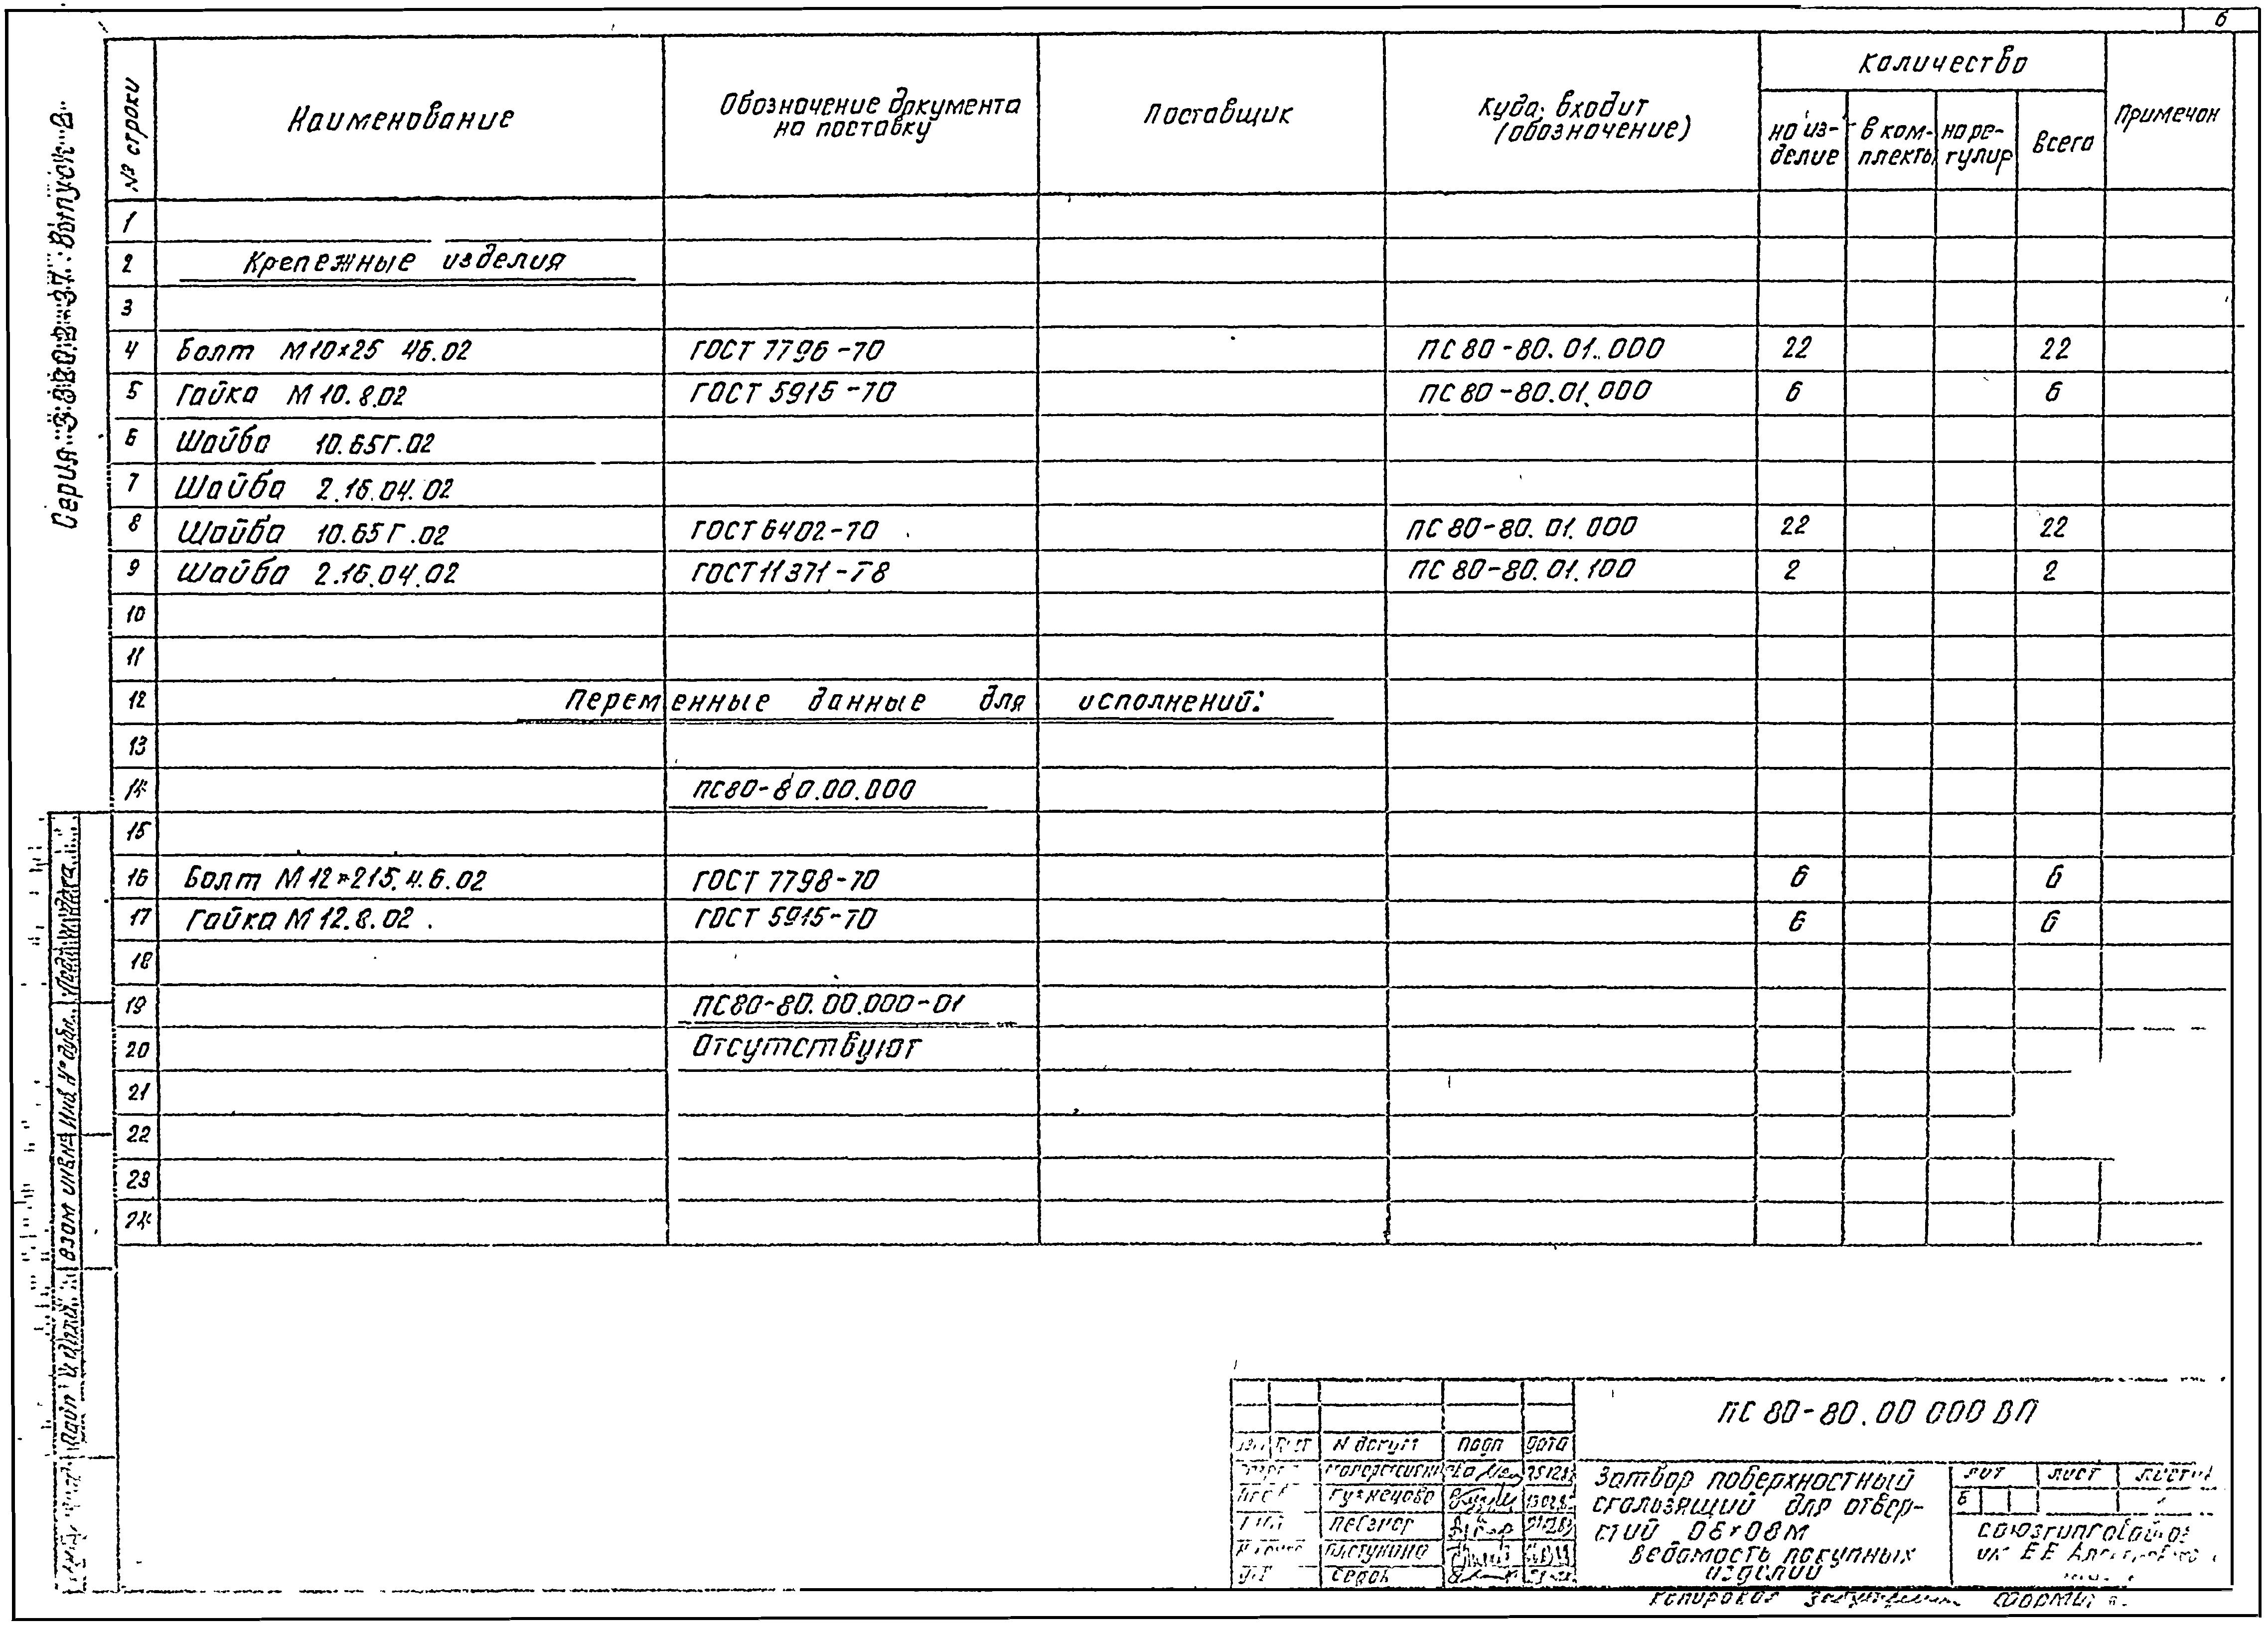 6
№ строки
Наименование
Обозначение документа
на поставку
Поставщик
Куда входит
(обозначение)
Количество
на из-
делие
в ком-
плекты
на ре-
гулир
Всего
Примечан
1
2 Крепежные изделия
3
4 Болт М10×25 46.02 ГОСТ 7796-70 ПС 80-80.01.000 22 22
5 Гайка М 10.8.02 ГОСТ 5915-70 ПС 80-80.01.000 6 6
6 Шайба 10.65Г.02
7 Шайба 2.16.04.02
8 Шайба 10.65Г.02 ГОСТ 6402-70 ПС 80-80.01.000 22 22
9 Шайба 2.16.04.02 ГОСТ 11371-78 ПС 80-80.01.100 2 2
10
11
12 Переменные данные для исполнений:
13
14 ПС80-80.00.000
15
16 Болт М12×215.4.6.02 ГОСТ 7798-70 6 6
17 Гайка М12.8.02 ГОСТ 5915-70 6 6
18
19 ПС80-80.00.000-01
20 Отсутствуют
21
22
23
24
Серия 3.820.2-37 Выпуск 2
Взам инв № Инв № дубл.
Подп и дата
ПС 80-80.00 000 ВП
N докум Подп Дата
Кузнецова
Певзнер
Пастухова
Седов
Затвор поверхностный
скользящий для отвер-
стий 08×08м
Ведомость покупных
изделий
Лит Лист Листов
Б
Копировал Формат